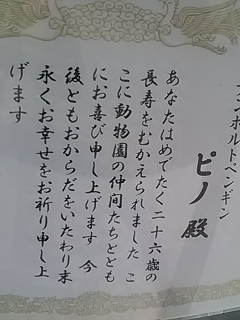 フンボルトペンギン
ピノ殿
あなたはめでたく二十六歳の
長寿をむかえられました こ
こに動物園の仲間たちととも
にお喜び申し上げます 今
後ともおからだをいたわり末
永くお幸せをお祈り申し上
げます